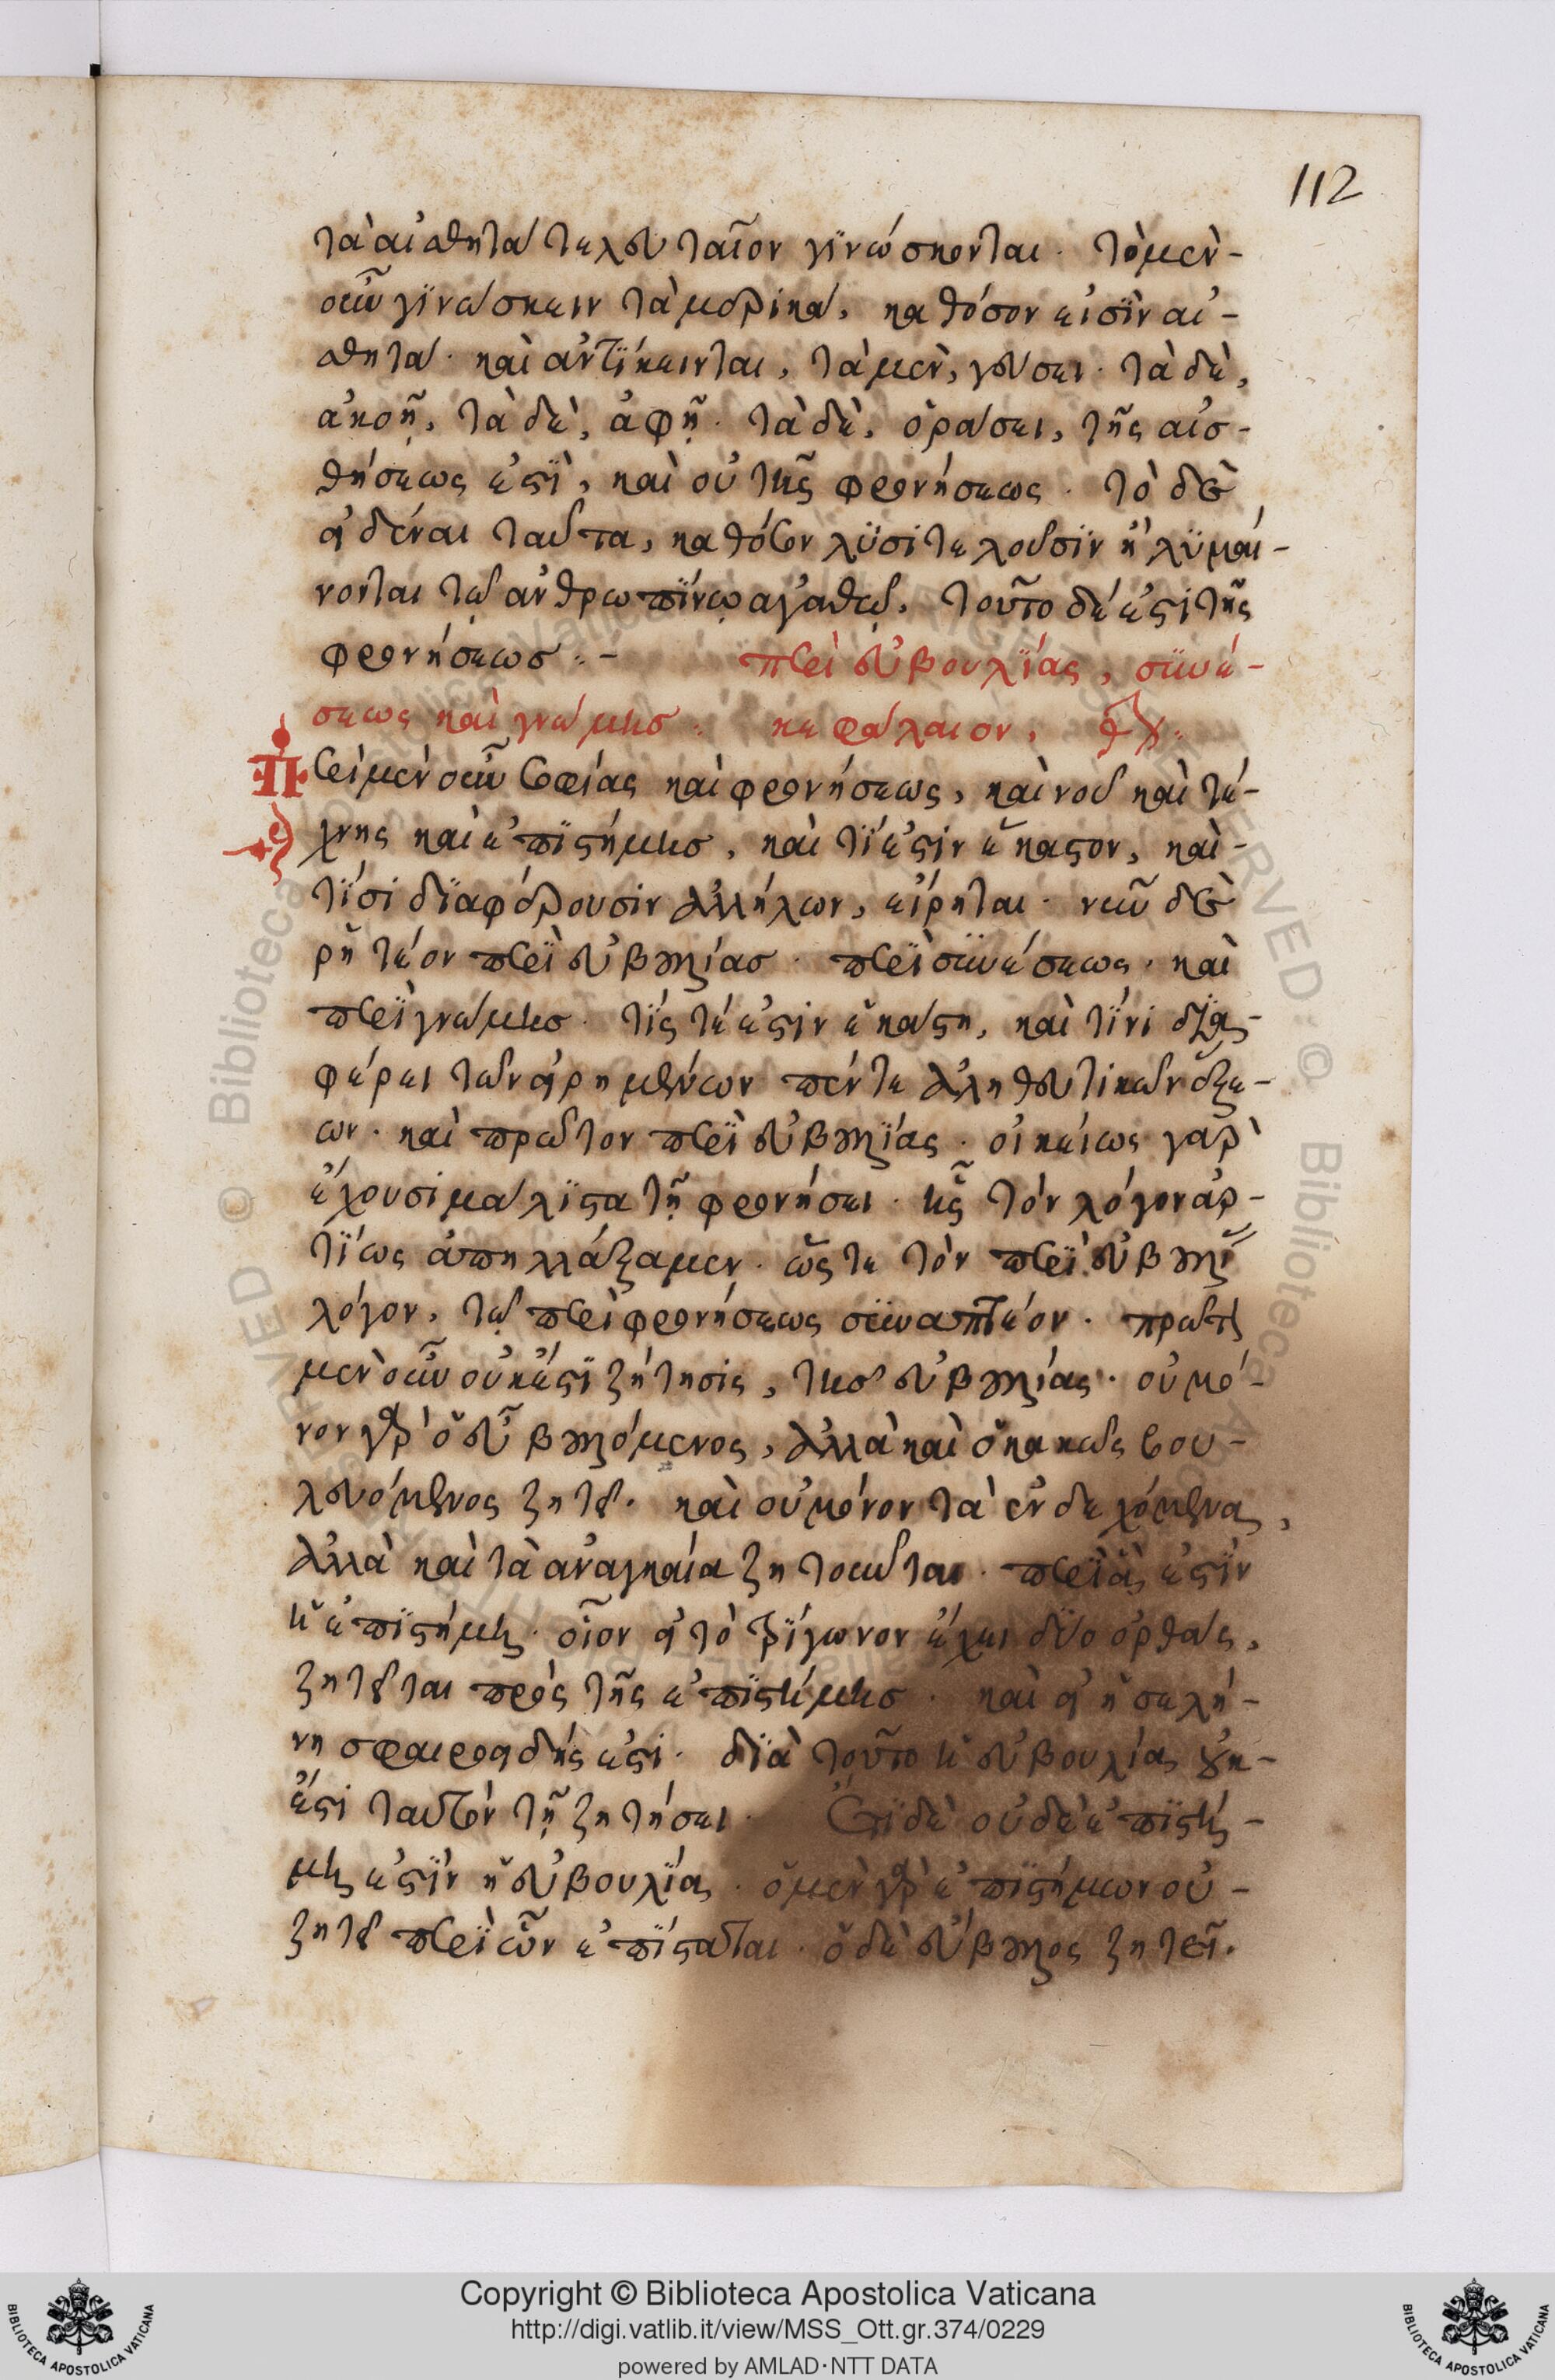 112
τὰ αἰσθητὰ τελευταῖον γϊνώσκονται. τὸ μὲν-
οὖν γϊνώσκειν τὰ μερικὰ, καθόσον εἰσῒν αἰ-
σθητά. καὶ ἀντΐκεινται, τὰ μὲν, γεύσει. τὰ δὲ,
ἀκοῇ, τὰ δὲ, ἁφῇ. τὰ δὲ, ὁράσει, τῆς αἰσ-
θήσεως ἐστῒ, καὶ οὐ τῆς φρονήσεως. τὸ δὲ
εἰδέναι ταῦτα, καθόσον λϋσιτελοῦσϊν ἢ λϋμαί-
νονται τῷ ἀνθρωπΐνῳ ἀγαθῷ, τοῦτο δέ ἐστι τῆς
φρονήσεως :-
περὶ εὐβουλΐας, σϋνέ-
σεως καὶ γνώμης. κεφάλαιον,
Περὶ μὲν οὖν σοφίας καὶ φρονήσεως, καὶ νοῦ καὶ τέ-
χνης καὶ ἐπϊστήμης, καὶ τΐ ἐστιν ἕκαστον, καὶ-
τΐσι δϊαφέρουσιν ἀλλήλων, εἴρηται. νῦν δὲ
ῥητέον περῒ εὐβουλίας. περῒ σϋνέσεως. καὶ
περῒ γνώμης. τΐς τέ ἐστιν ἑκάστη, καὶ τΐνι δϊα-
φέρει τῶν εἰρημένων πέντε ἀληθευτικῶν ἕξε-
ων. καὶ πρῶτον περῒ εὐβουλΐας. οἰκείως γὰρ
ἔχουσι μάλϊστα τῇ φρονήσει. ἧς τὸν λόγον ἀρ-
τΐως ἀπηλλάξαμεν. ὥστε τὸν περῒ εὐβουλΐας
λόγον, τῷ περὶ φρονήσεως σϋναπτέον. πρῶτον
μὲν οὖν οὐκ ἔστϊ ζήτησις, τῆς εὐβουλίας. οὐ μό-
νον γὰρ ὁ εὖ βουλόμενος, ἀλλὰ καὶ ὁ κακῶς βου-
λευόμενος ζητεῖ. καὶ οὐ μόνον τὰ ἐνδεχόμενα,
ἀλλὰ καὶ τὰ ἀναγκαία ζητοῦνται. περῒ ἅ ἐστϊν
ἡ ἐπϊστήμη. οἷον εἰ τὸ τρΐγωνον ἔχει δύο ὀρθὰς,
ζητεῖται πρὸς τῆς ἐπϊστήμης. καὶ εἰ ἡ σελή-
νη σφαιροειδής ἐστι. δϊὰ τοῦτο ἡ εὐβουλία οὐκ-
ἔστι ταυτὸν τῇ ζητήσει. Ἔτϊ δὲ οὐδὲ ἐπϊστή-
μη ἐστῒν ἡ εὐβουλΐα. ὁ μὲν γὰρ ἐπϊστήμων οὐ-
ζητεῖ περῒ ὧν ἐπΐσταται. ὁ δὲ εὔβουλος ζητεῖ.
Copyright © Biblioteca Apostolica Vaticana
http://digi.vatlib.it/view/MSS_Ott.gr.374/0229
powered by AMLAD·NTT DATA